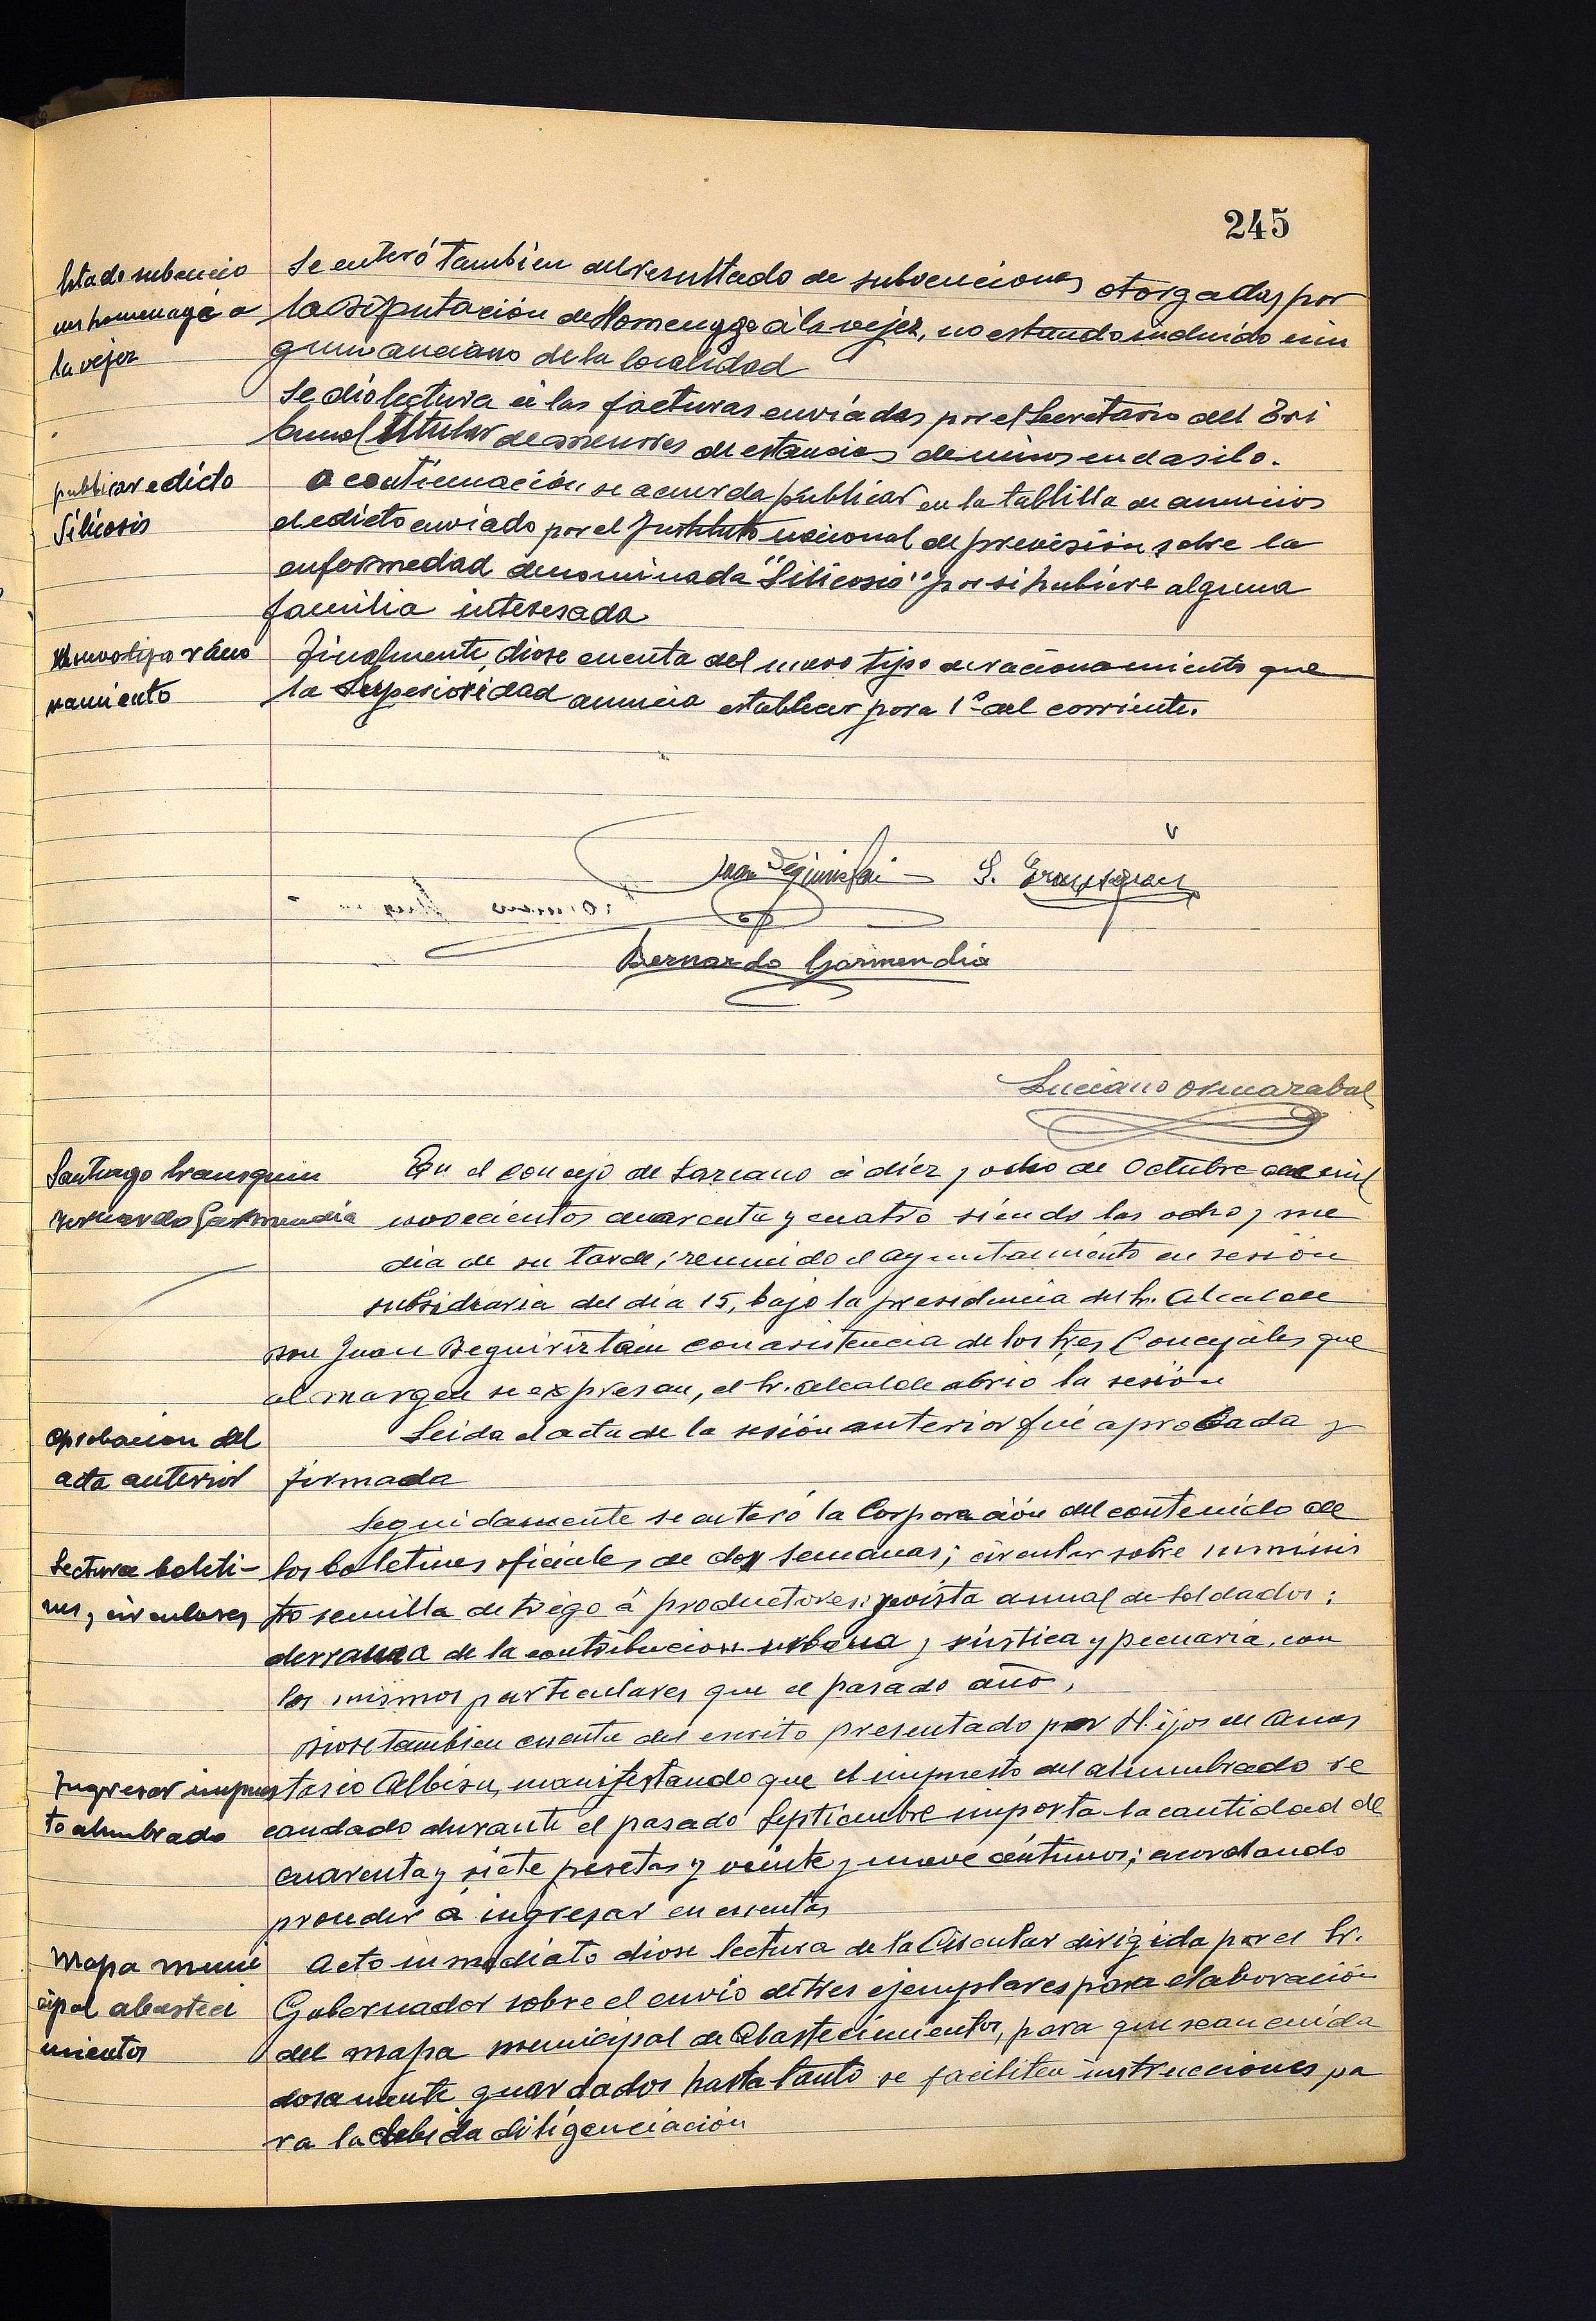 245
lista de subencio
nes homenage a
la vejez
Se enteró tambien del resultado de subvenciones otorgadas por
la Diputación de Homenage á la vejez, no estando incluido nin
gun anciano de la localidad
Se dió lectura á las facturas enviadas por el Secretario del Tri
bunal Tutelar de menores de estancias de niños en el asilo.
publicar edicto
Silicosis
A continuación se acuerda publicar en la tablilla de anuncios
el edicto enviado por el Instituto nacional de previsión sobre la
enfermedad denominada "Silicosis" por si hubiere alguna
familia interesada
Nuevo tipo racio
namiento
Finalmente, diose cuenta del nuevo tipo de racionamiento que
la Superioridad anuncia establecer para 1º del corriente.
Juan Beguiristain S. Erausquin
Bernardo Garmendia
Luciano Ormazabal
Santiago Erausquin
Bernardo Garmendia
En el concejo de Lazcano á diez y ocho de Octubre de mil
novecientos cuarenta y cuatro siendo las ocho y me
dia de su tarde; reunido el Ayuntamiento en sesión
subsidiaria del dia 15, bajo la presidencia del Sr. Alcalde
Don Juan Beguiriztain con asistencia de los tres Concejales que
al margen se expresan, el Sr. Alcalde abrió la sesión
Aprobacion del
acta anterior
Leida el acta de la sesión anterior fué aprobada y
firmada
Seguidamente se enteró la Corporación del contenido de
Lectura boleti-
nes, circulares
los boletines oficiales de dos semanas; circular sobre suminis
tro semilla de trigo á productores; revista anual de soldados;
derrama de la contribucion urbana, rústica y pecuaria, con
los mismos particulares que el pasado año,
Diose tambien cuenta del escrito presentado por Hijos de Anas
Ingresar impues
to alumbrado
tasio Albisu, manifestando que el impuesto del alumbrado re
caudado durante el pasado Septiembre importa la cantidad de
cuarenta y siete pesetas y veinte y nueve céntimos; acordando
proceder á ingresar en cuentas
Mapa muni
cipal abasteci
mientos
Acto inmediato diose lectura de la Circular dirigida por el Sr.
Gobernador sobre el envio de tres ejemplares para elaboración
del mapa municipal de Abastecimientos, para que sean cuida
dosamente guardados hasta tanto se faciliten instrucciones pa
ra la debida diligenciación